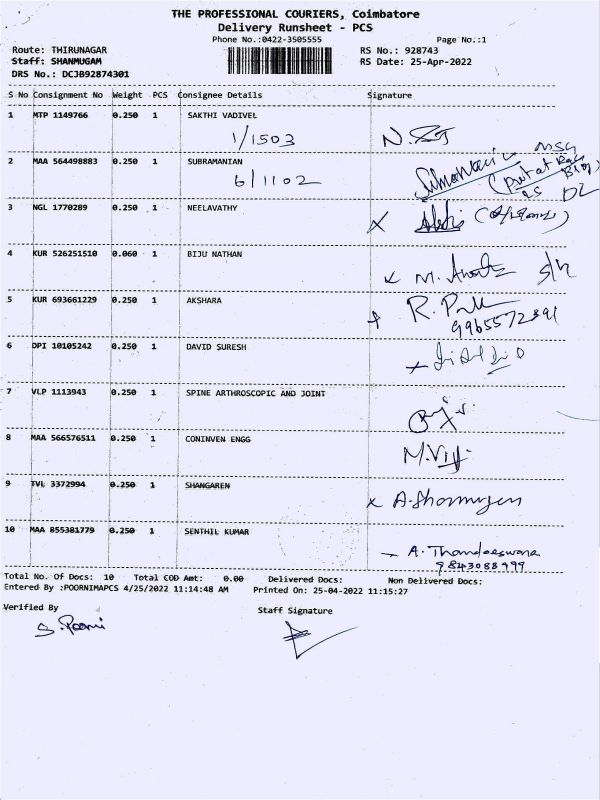 THE PROFESSIONAL COURIERS, Coimbatore
Delivery Runsheet - PCS
Phone No.:0422-3505555 Page No.:1
Route: THIRUNAGAR RS No.: 928743
Staff: SHANMUGAM RS Date: 25-Apr-2022
DRS No.: DCJB92874301
S No Consignment No Weight PCS Consignee Details Signature
1 MTP 1149766 0.250 1 SAKTHI VADIVEL
1/1503
2 MAA 564498883 0.250 1 SUBRAMANIAN
6/1102
3 NGL 1770289 0.250 1 NEELAVATHY
4 KUR 526251510 0.060 1 BIJU NATHAN
5 KUR 693661229 0.250 1 AKSHARA
6 DPI 10105242 0.250 1 DAVID SURESH
7 VLP 1113943 0.250 1 SPINE ARTHROSCOPIC AND JOINT
8 MAA 566576511 0.250 1 CONINVEN ENGG
M.Vij
9 TVL 3372994 0.250 1 SHANGAREN
A.Shanmugam
10 MAA 855381779 0.250 1 SENTHIL KUMAR
A. Thandeeswara
9843088999
Total No. Of Docs: 10 Total COD Amt: 0.00 Delivered Docs: Non Delivered Docs:
Entered By :POORNIMAPCS 4/25/2022 11:14:48 AM Printed On: 25-04-2022 11:15:27
Verified By Staff Signature
S.Poorni